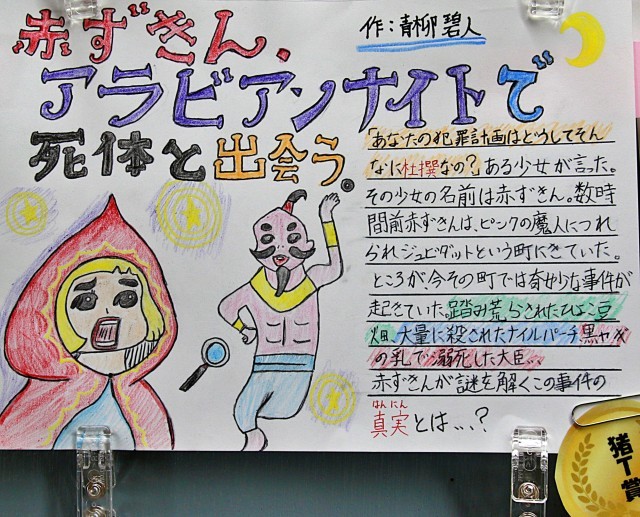 赤ずきん、
アラビアンナイトで
死体と出会う。
作:青柳 碧人
「あなたの犯罪計画はどうしてそん
なに杜撰なの?」ある少女が言った。
その少女の名前は赤ずきん。数時
間前赤ずきんは、ピンクの魔人につれ
られジュビダットという町にきていた。
ところが、今その町では奇妙な事件が
起きていた。踏み荒らされたひよこ豆
畑、大量に殺されたナイルパーチ、黒ヤギ
の乳で溺死した大臣…
赤ずきんが謎を解くこの事件の
はんにん
真実とは…?
猪T賞